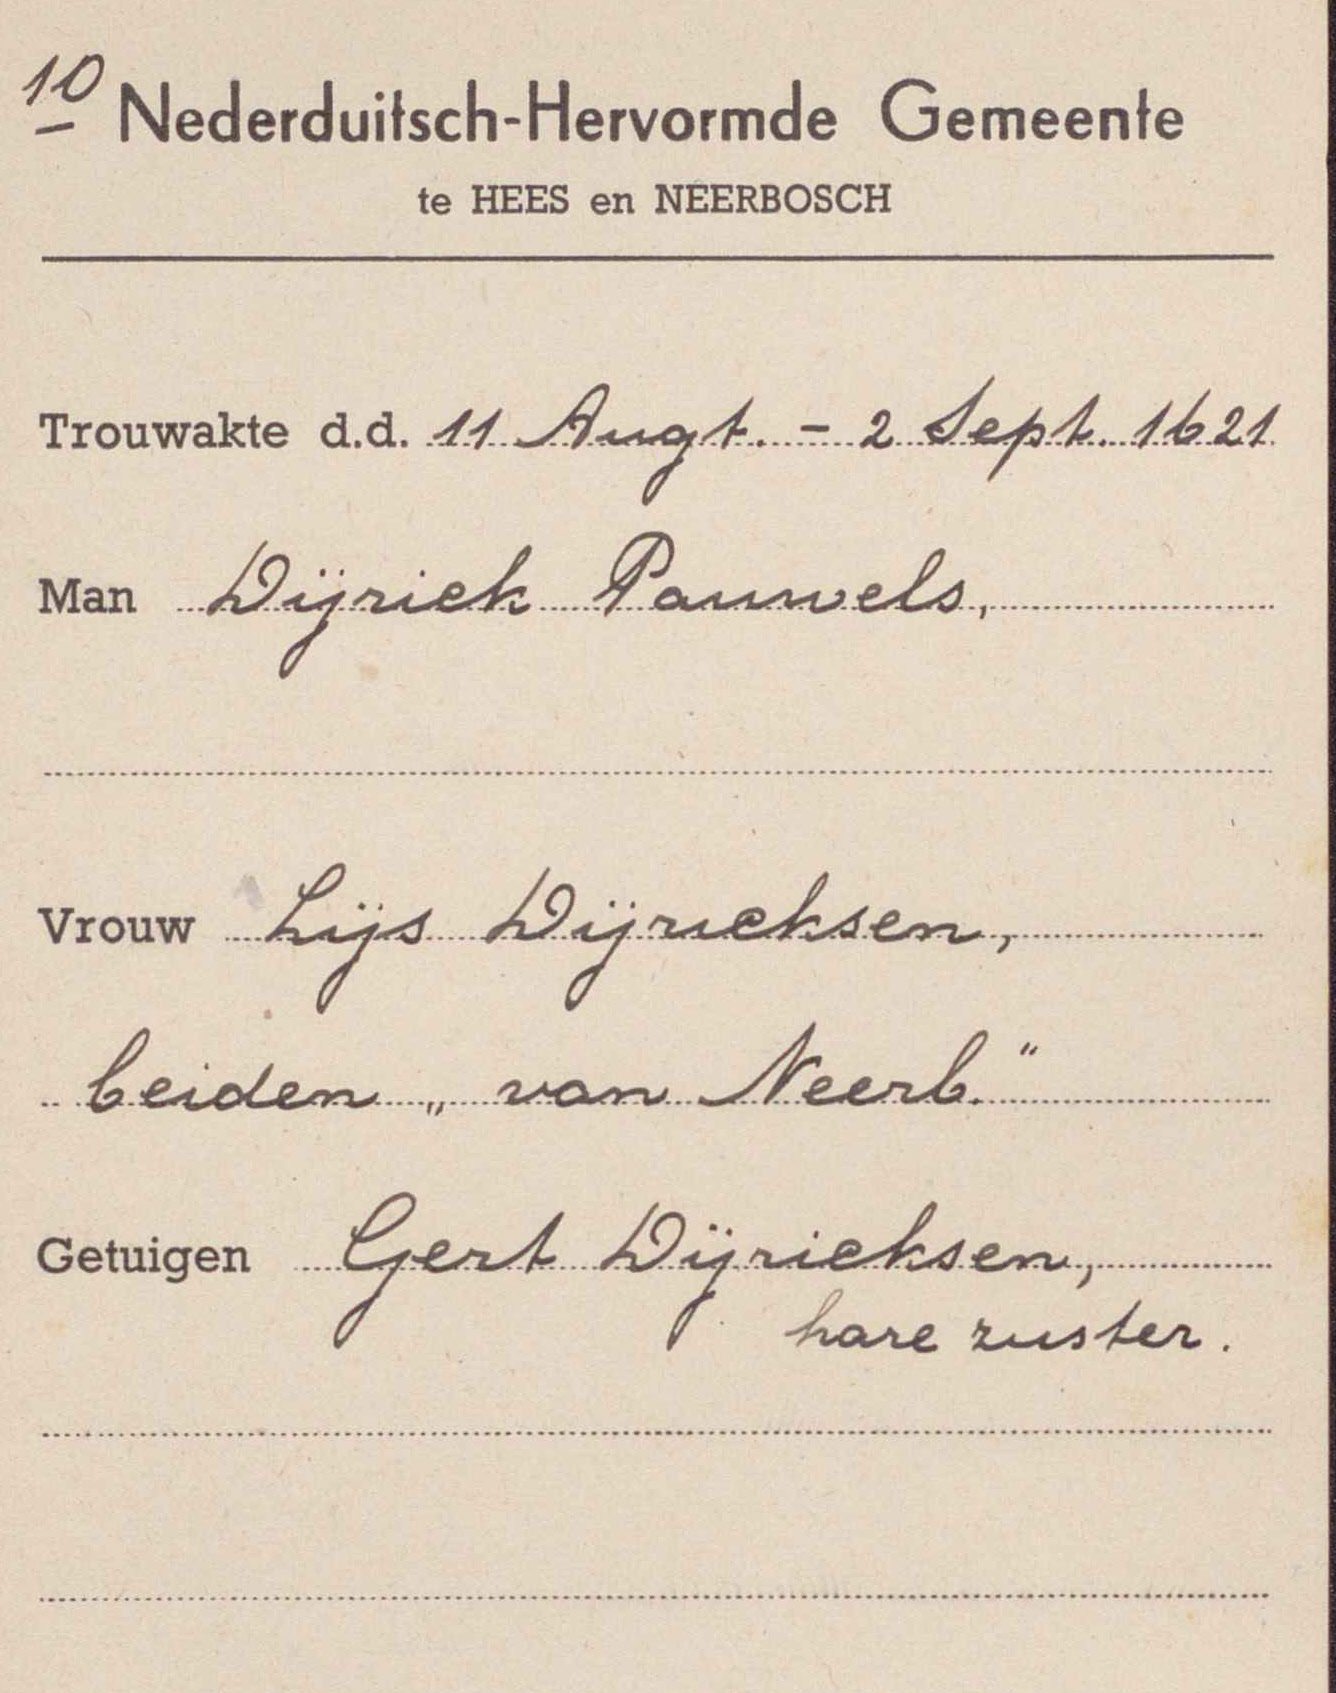 10
Nederduitsch-Hervormde Gemeente
te HEES en NEERBOSCH
Trouwakte d.d. 11 Augt. - 2 Sept. 1621
Man Dijriek Pauwels,
Vrouw Lijs Dijrieksen,
beiden „van Neerb."
Getuigen Gert Dijrieksen,
hare zuster.